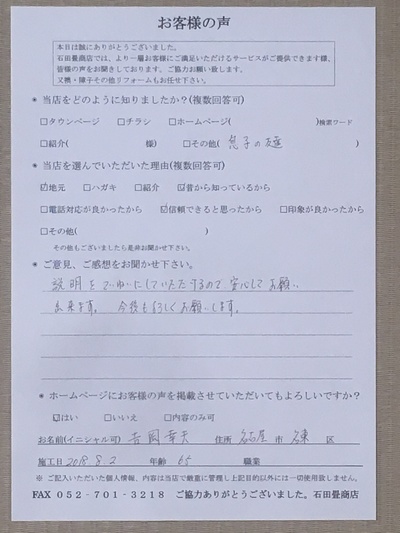 お客様の声
本日は誠にありがとうございました。
石田畳商店では、より一層お客様にご満足いただけるサービスがご提供できます様、
皆様の声をお聞きしております。ご協力お願い致します。
又襖・障子その他リフォームもお任せ下さい。
* 当店をどのように知りましたか?(複数回答可)
□タウンページ □チラシ □ホームページ( )検索ワード
□紹介( 様) □その他( 息子の友達 )
* 当店を選んでいただいた理由(複数回答可)
☑地元 □ハガキ □紹介 ☑昔から知っているから
□電話対応が良かったから ☑信頼できると思ったから □印象が良かったから
□その他( )
その他もございましたら是非お聞かせ下さい。
* ご意見、ご感想をお聞かせ下さい。
説明をていねいにしていただけるので安心してお願い
出来ます。 今後もよろしくお願いします。
* ホームページにお客様の声を掲載させていただいてもよろしいですか?
☑はい □いいえ □内容のみ可
お名前(イニシャル可) 吉岡幸夫 住所 名古屋 市 名東 区
施工日 2018.8.2 年齢 65 職業
※ ご記入いただいた個人情報、内容は当店で厳重に管理し上記目的以外には一切使用致しません。
FAX 052-701-3218 ご協力ありがとうございました。石田畳商店